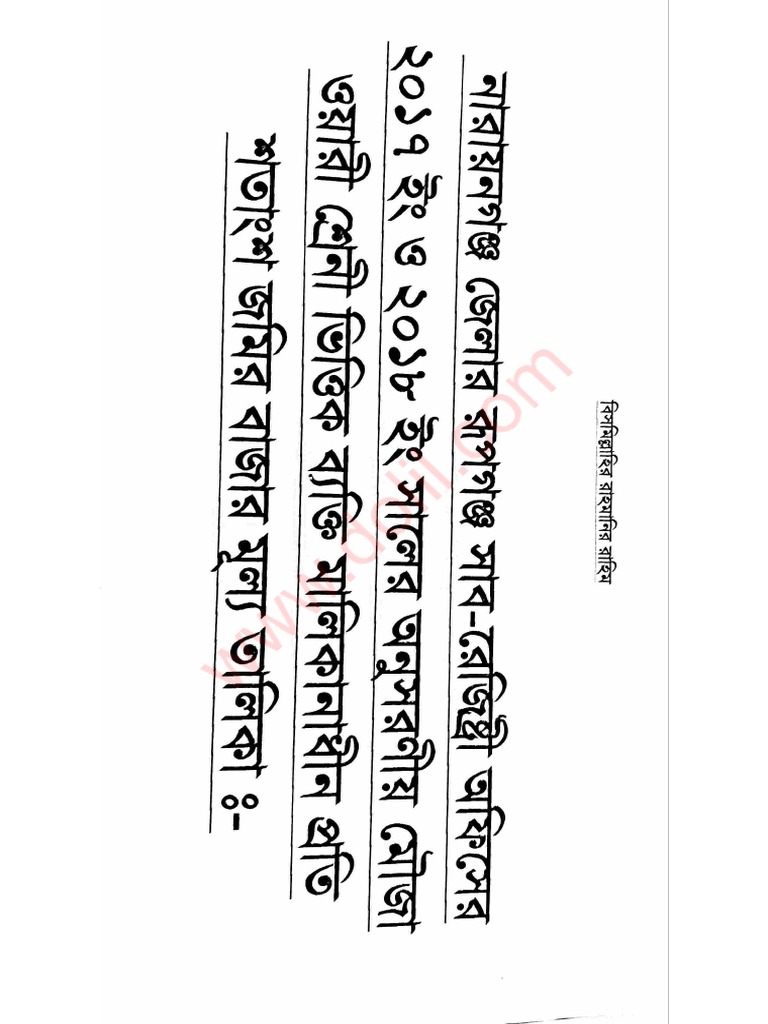 বিসমিল্লাহির রাহমানির রাহিম
নারায়নগঞ্জ জেলার রূপগঞ্জ সাব-রেজিষ্ট্রী অফিসের
২০১৭ ইং ও ২০১৮ ইং সালের অনুসরণীয় মৌজা
ওয়ারী শ্রেনী ভিত্তিক ব্যক্তি মালিকানাধীন প্রতি
শতাংশ জমির বাজার মূল্য তালিকা ঃ-
www.dolil.com